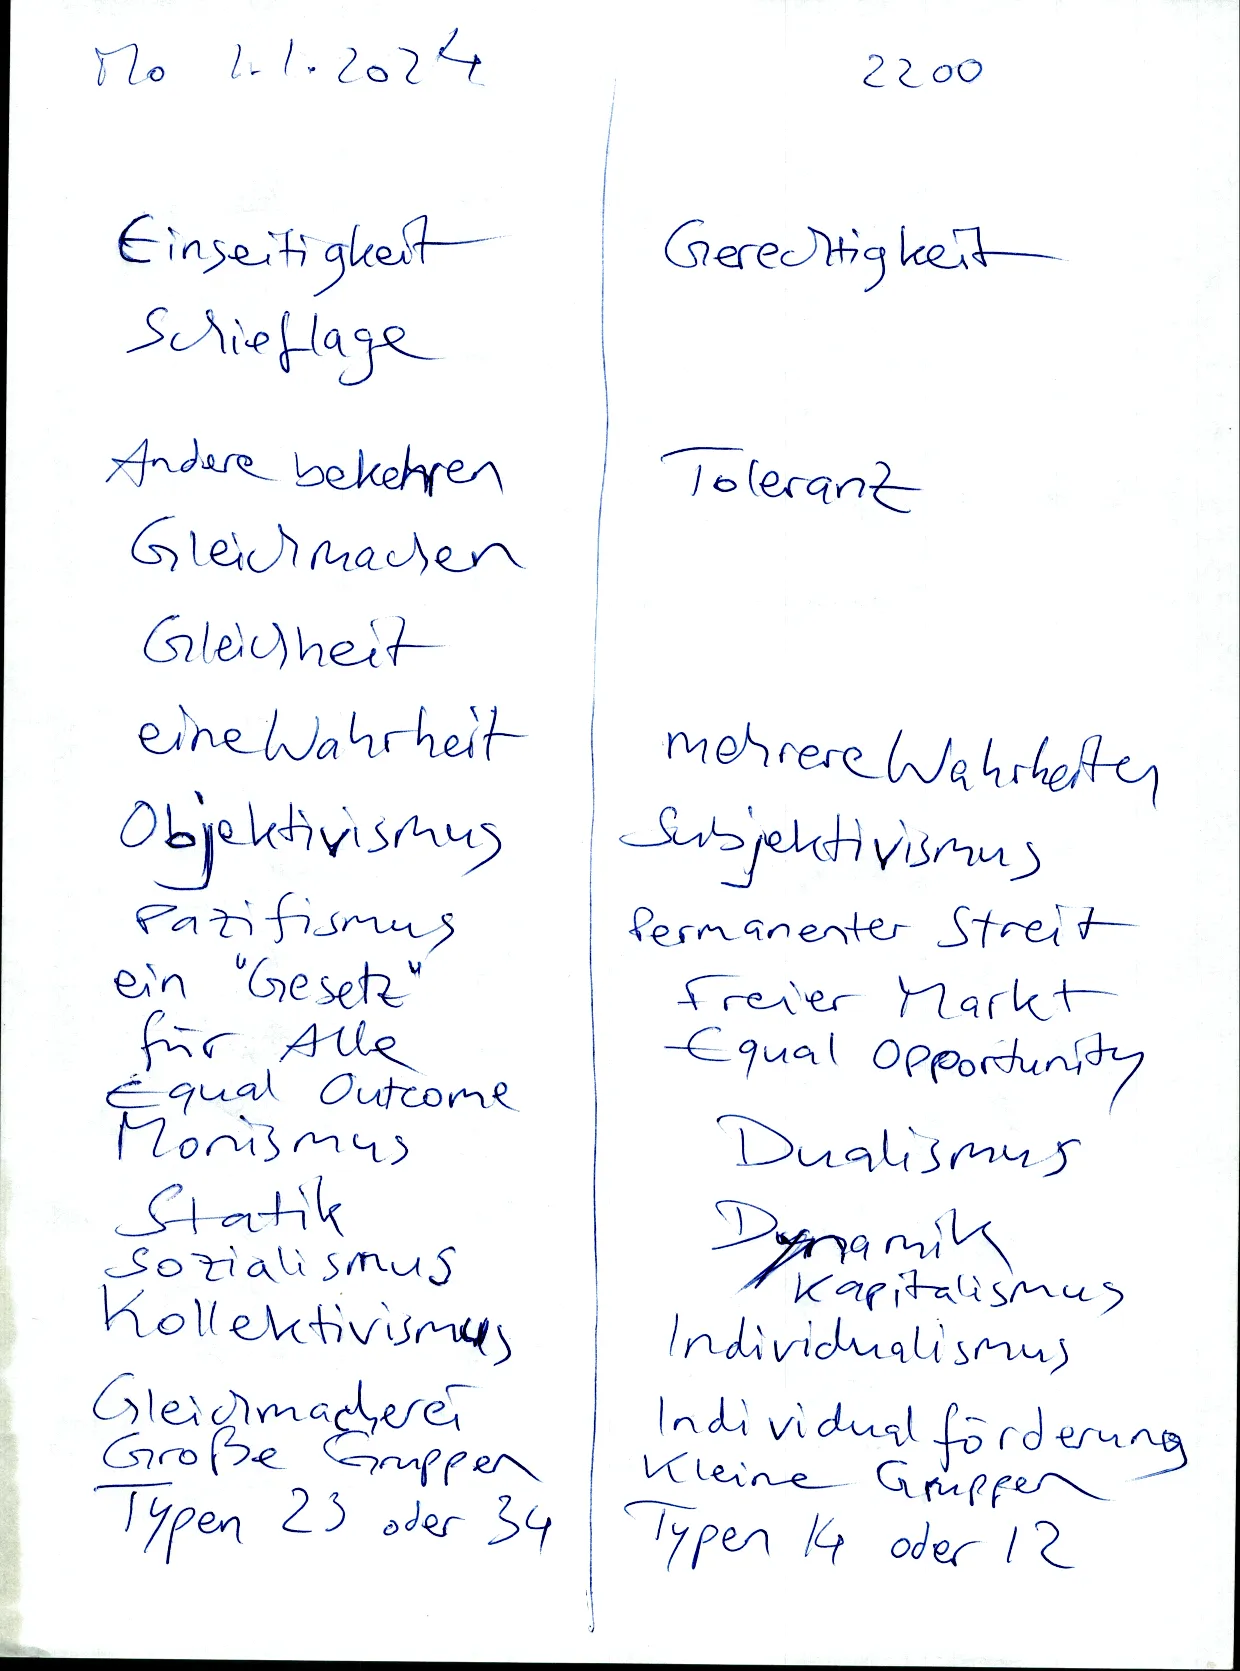 Mo 1.1.2024
2200
Einseitigkeit
Schieflage
Andere bekehren
Gleichmachen
Gleichheit
eine Wahrheit
Objektivismus
Pazifismus
ein "Gesetz"
für Alle
Equal Outcome
Monismus
Statik
Sozialismus
Kollektivismus
Gleichmacherei
Große Gruppen
Typen 23 oder 34
Gerechtigkeit
Toleranz
mehrere Wahrheiten
Subjektivismus
Permanenter Streit
Freier Markt
Equal Opportunity
Dualismus
Dynamik
Kapitalismus
Individualismus
Individualförderung
Kleine Gruppen
Typen 14 oder 12